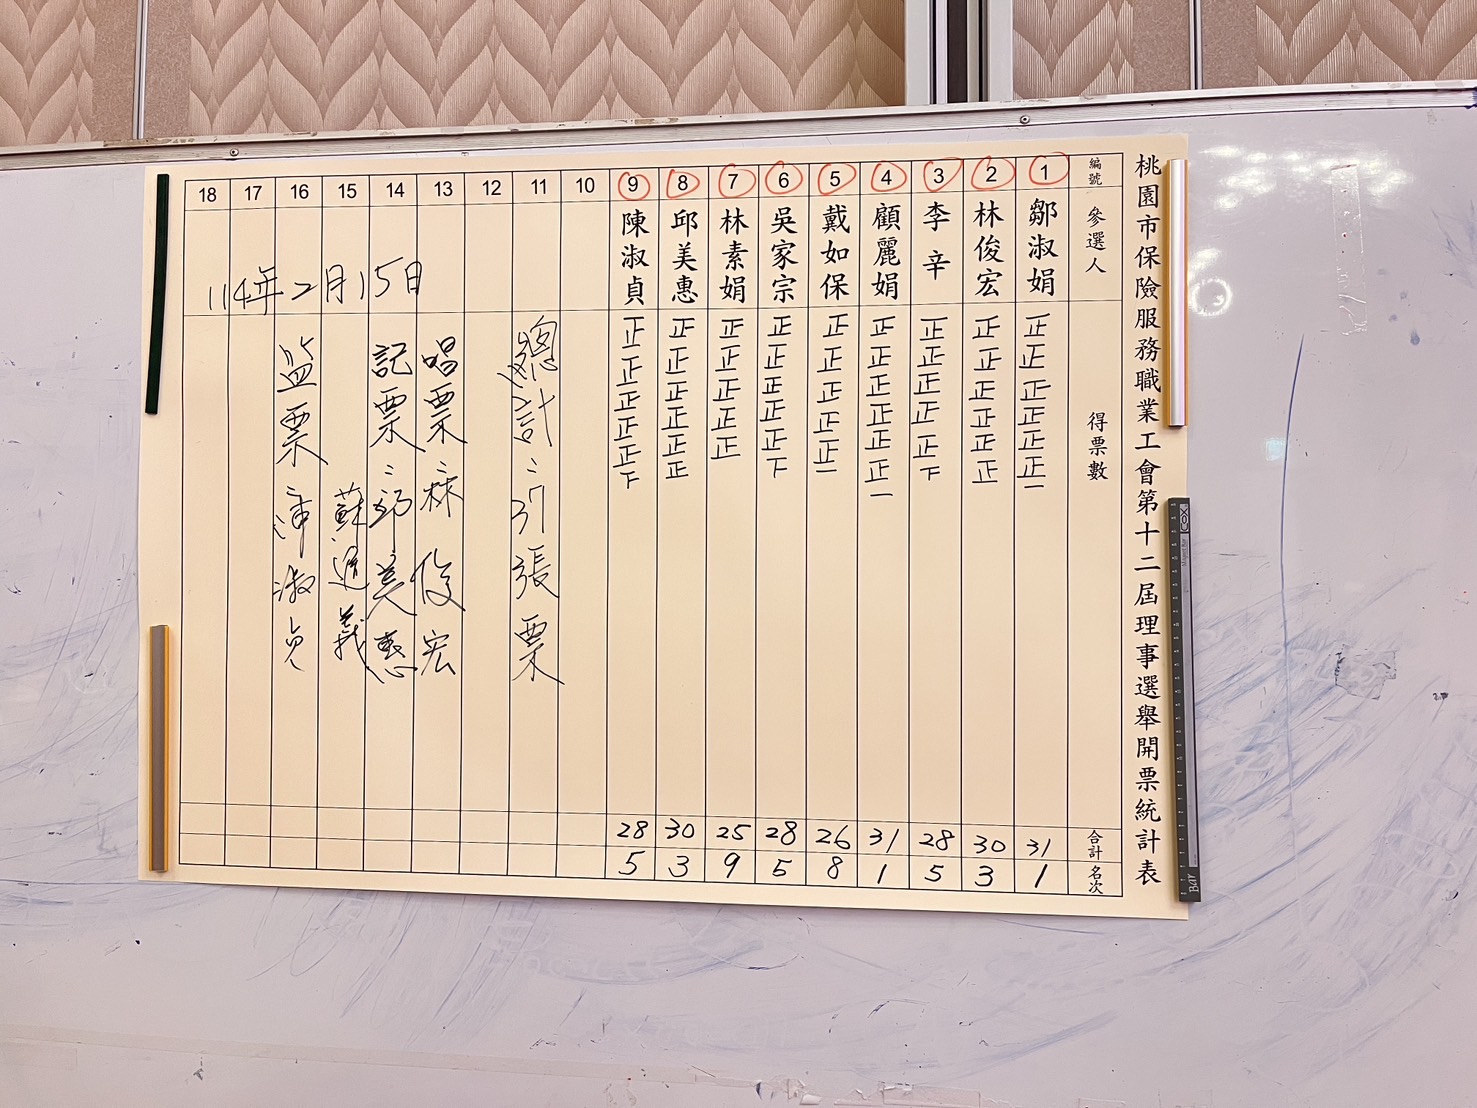 桃園市保險服務職業工會第十二屆理事選舉開票統計表
編號 參選人 得票數 合計 名次
1 鄒淑娟 正正正正正正一 31 1
2 林俊宏 正正正正正正 30 3
3 李辛 正正正正正下 28 5
4 顧麗娟 正正正正正正一 31 1
5 戴如保 正正正正正一 26 8
6 吳家宗 正正正正正下 28 5
7 林素娟 正正正正正 25 9
8 邱美惠 正正正正正正 30 3
9 陳淑貞 正正正正正下 28 5
10
11 總計:37張票
12
13 唱票:林俊宏
14 記票:邱美惠
15 蘇進義
16 監票:陳淑貞
17
18
114年2月15日